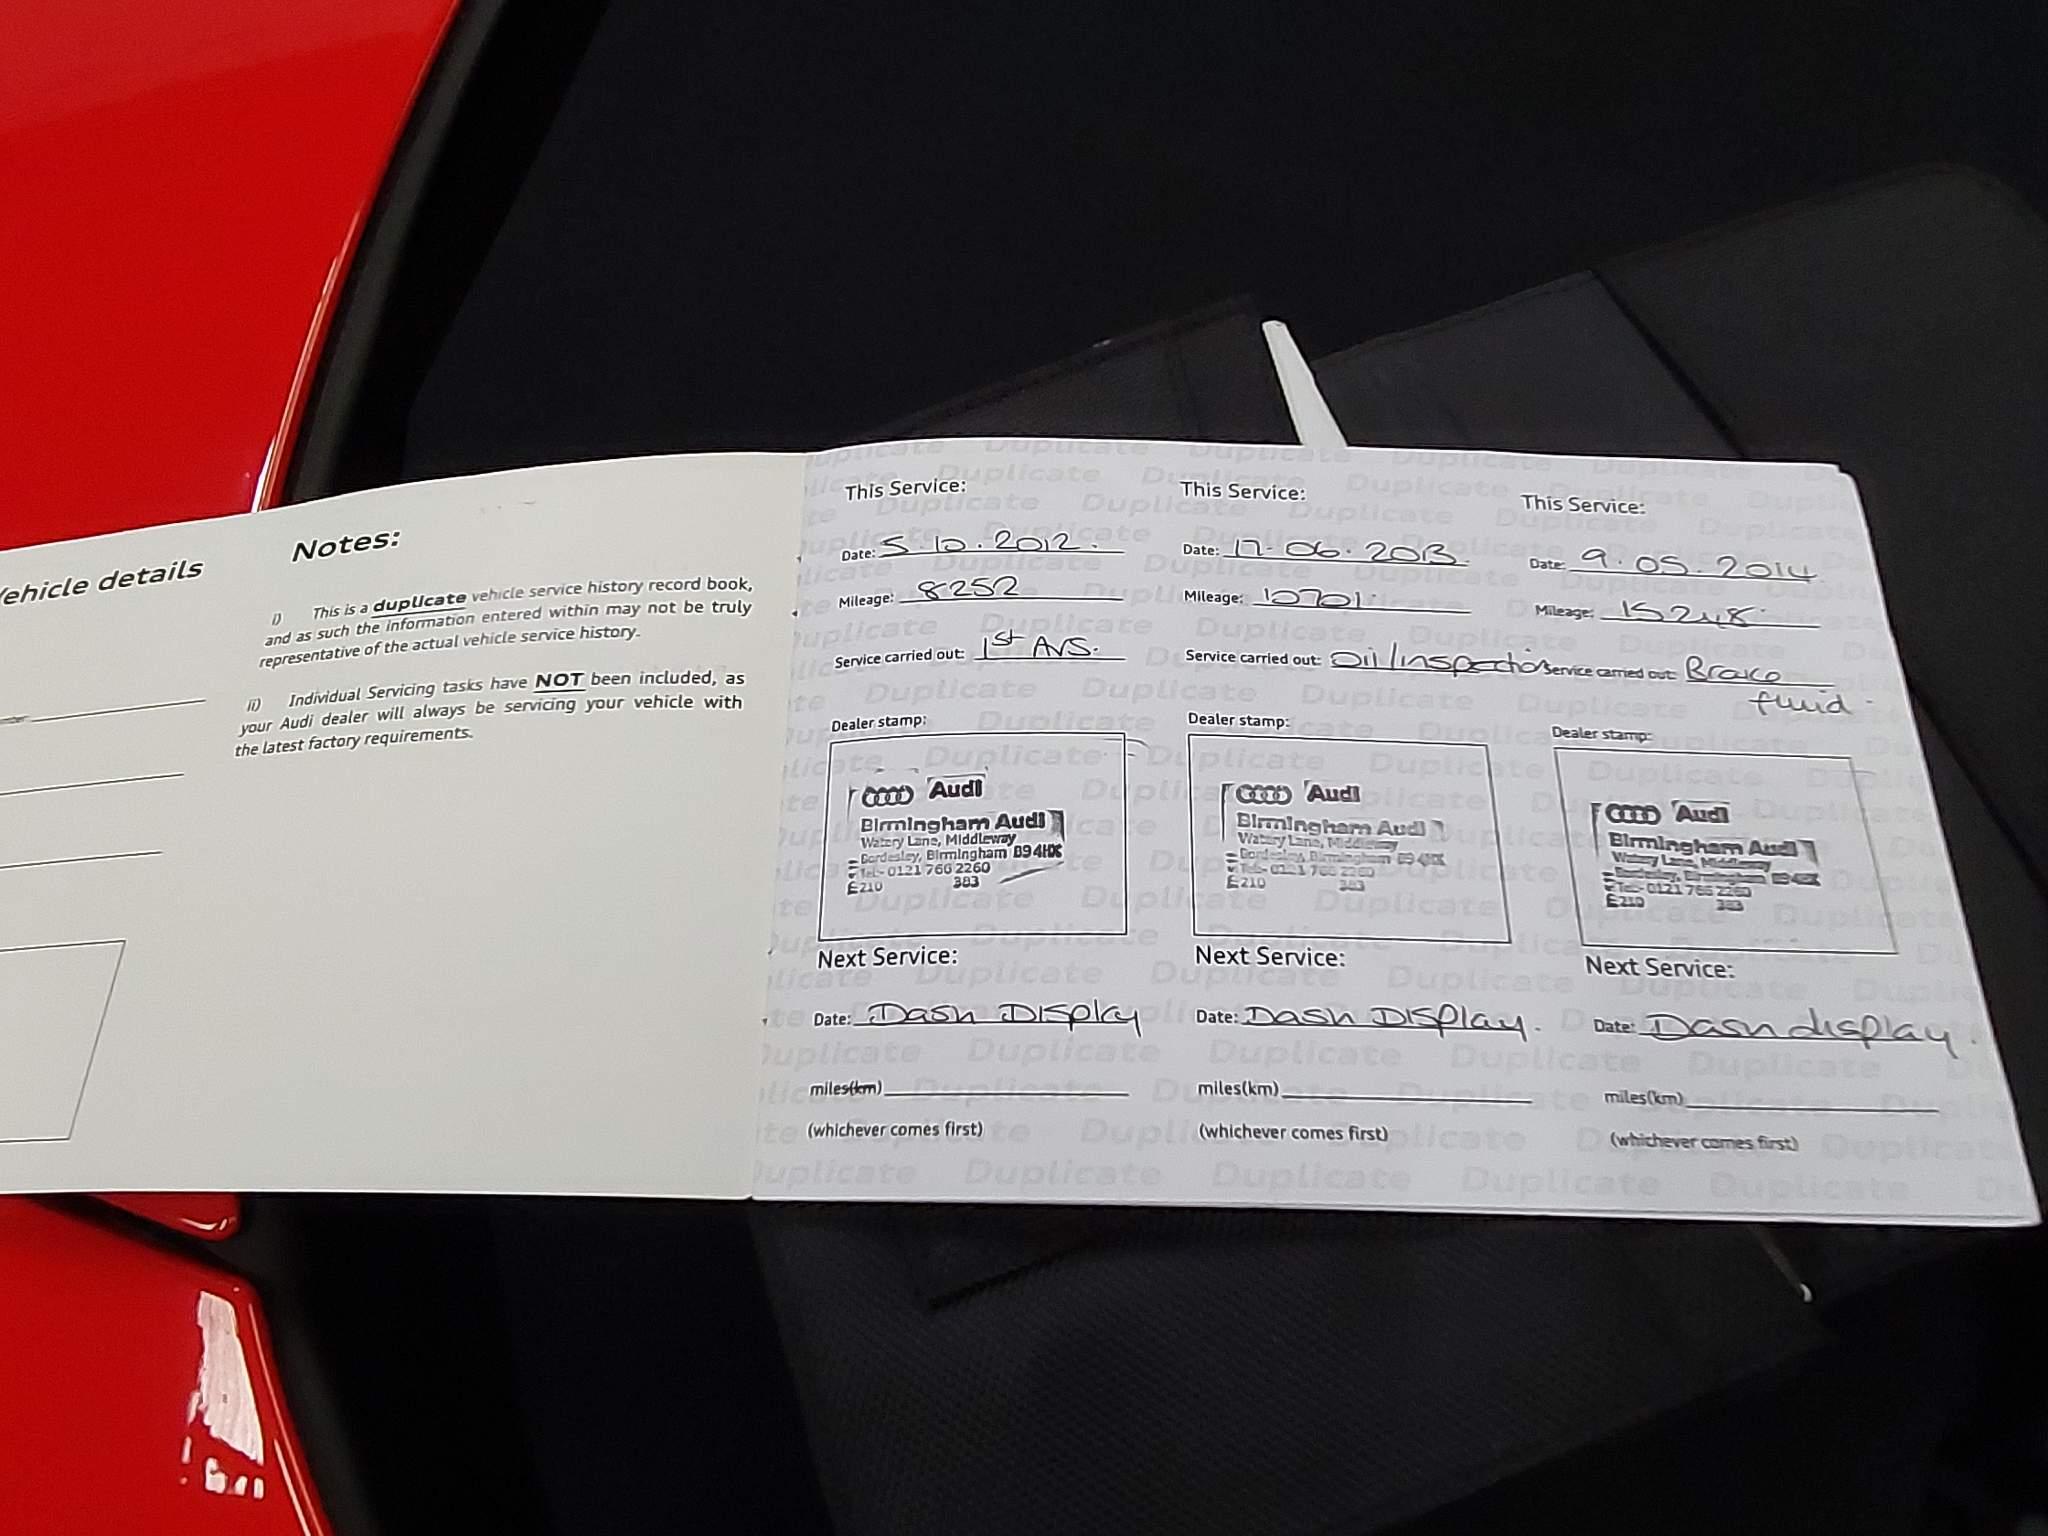 Vehicle details
Notes:
i) This is a duplicate vehicle service history record book,
and as such the information entered within may not be truly
representative of the actual vehicle service history.
ii) Individual Servicing tasks have NOT been included, as
your Audi dealer will always be servicing your vehicle with
the latest factory requirements.
This Service:
Date: 5.10.2012.
Mileage: 8252
Service carried out: 1st AVS.
Dealer stamp:
Audi
Birmingham Audi
Watery Lane, Middleway
Bordesley, Birmingham B9 4HX
Tel:- 0121 766 2260
210 383
Next Service:
Date: Dash Display
miles(km)
(whichever comes first)
This Service:
Date: 17.06.2013
Mileage: 10701.
Service carried out: Oil/inspection
Dealer stamp:
Audi
Birmingham Audi
Watery Lane, Middleway
Bordesley, Birmingham B9 4HX
Tel:- 0121 766 2260
210 383
Next Service:
Date: Dash Display.
miles(km)
(whichever comes first)
This Service:
Date: 9.05.2014
Mileage: 15248.
Service carried out: Brake
fluid.
Dealer stamp:
Audi
Birmingham Audi
Watery Lane, Middleway
Bordesley, Birmingham B9 4HX
Tel:- 0121 766 2260
210 383
Next Service:
Date: Dash display.
miles(km)
(whichever comes first)